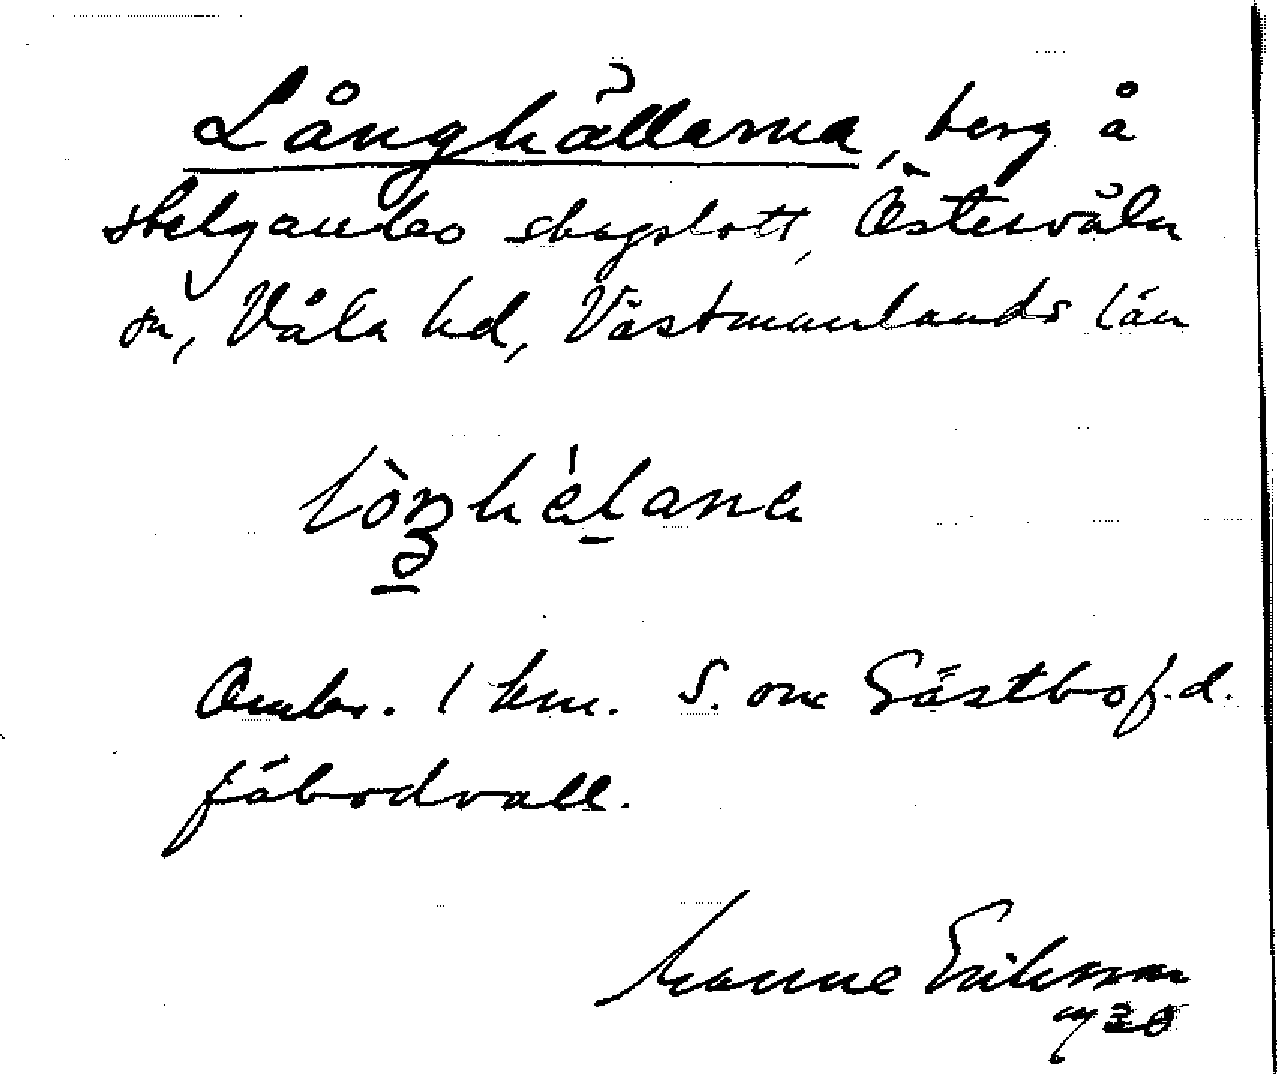 Långhällarna, berg å
Helgandbo skogslott, Östervåla
sn, Våla hd, Västmanlands län
Omkr. 1 km. S. om Gästbo f.d.
fäbodvall.
Manne Eriksson
1930